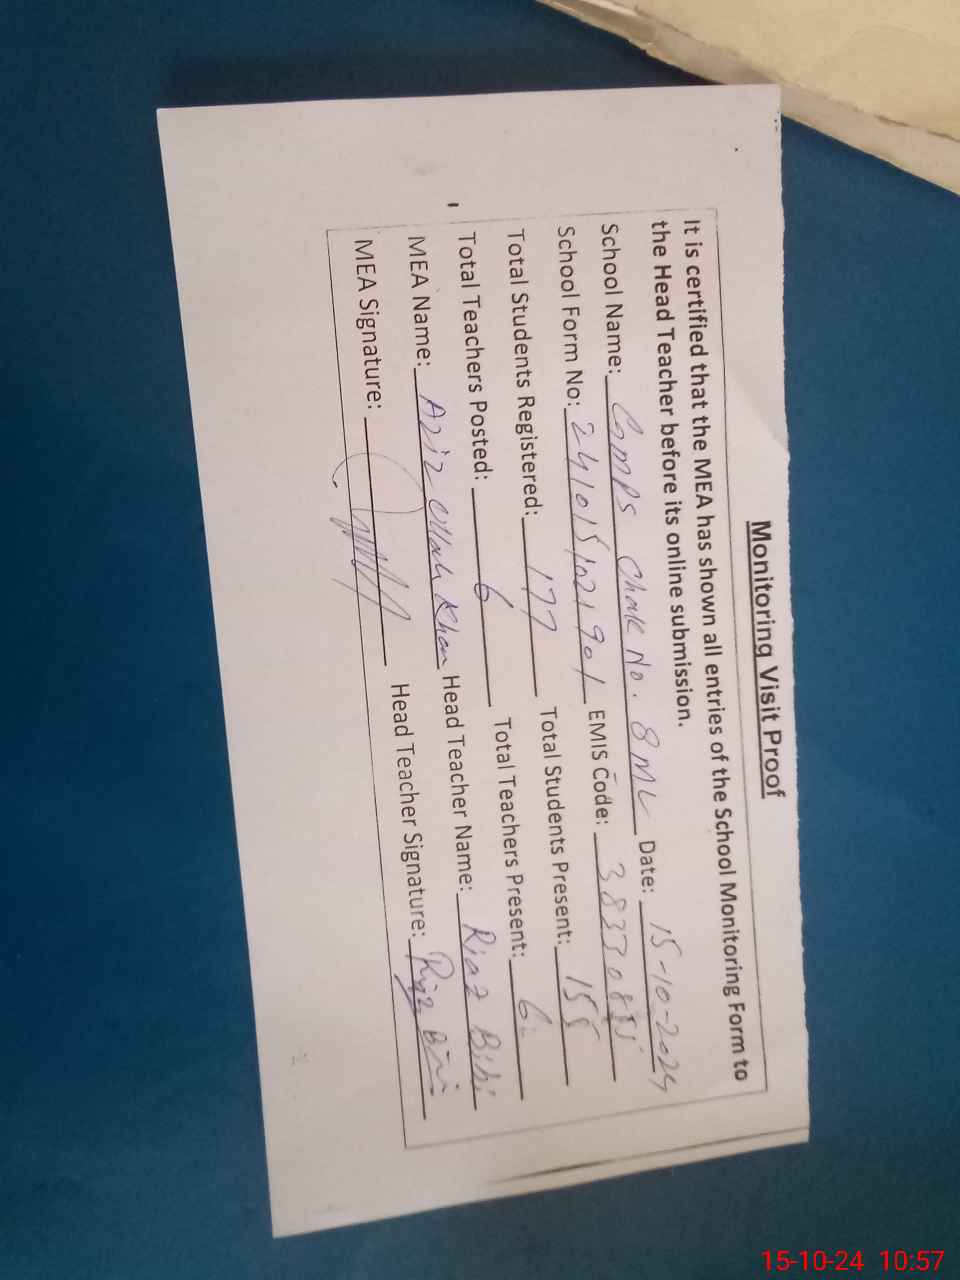 Monitoring Visit Proof
It is certified that the MEA has shown all entries of the School Monitoring Form to
the Head Teacher before its online submission.
School Name: GMPS Chak No. 8 ML Date: 15-10-2024
School Form No: EMIS Code:
Total Students Registered: 177 Total Students Present: 158
Total Teachers Posted: 6 Total Teachers Present: 6
MEA Name: Aziz Ullah Khan Head Teacher Name: Riaz Bibi
MEA Signature: Head Teacher Signature: Bibi
15-10-24 10:57